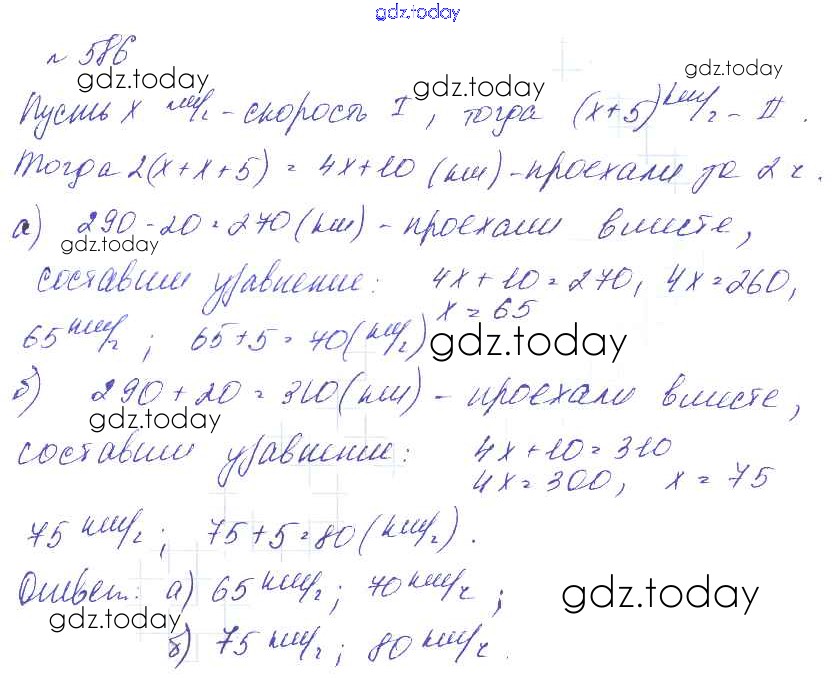 gdz.today
№ 586
gdz.today gdz.today gdz.today
Пусть x км/ч - скорость I, тогда (x+5) км/ч - II.
Тогда 2(x+x+5) = 4x+10 (км) - проехали за 2 ч.
а) 290-20=270(км) - проехали вместе,
gdz.today
составим уравнение: 4x+10=270, 4x=260,
x=65
65 км/ч; 65+5=70(км/ч)
gdz.today
б) 290+20=310(км) - проехали вместе,
gdz.today
составим уравнение: 4x+10=310
4x=300, x=75
75 км/ч; 75+5=80(км/ч).
Ответ: а) 65 км/ч; 70 км/ч;
gdz.today gdz.today
б) 75 км/ч; 80 км/ч.